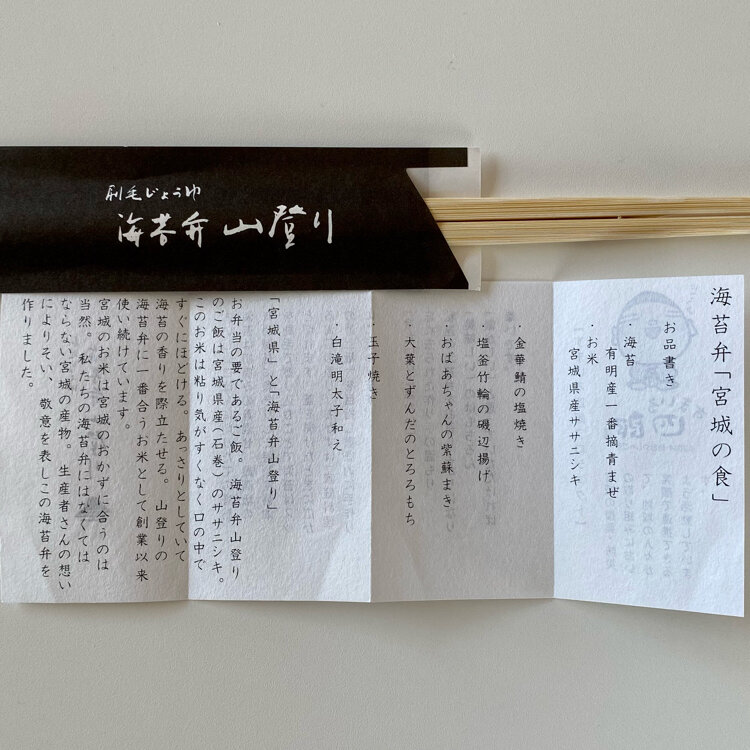 刷毛じょうゆ
海苔弁 山登り
海苔弁「宮城の食」
お品書き
・海苔
有明産一番摘青まぜ
・お米
宮城県産ササニシキ
・金華鯖の塩焼き
・塩釜竹輪の磯辺揚げ
・おばあちゃんの紫蘇まき
・大葉とずんだのとろろもち
・玉子焼き
・白滝明太子和え
「宮城県」と「海苔弁山登り」
お弁当の要であるご飯。海苔弁山登り
のご飯は宮城県産(石巻)のササニシキ。
このお米は粘り気がすくなく口の中で
すぐにほどける。あっさりとしていて
海苔の香りを際立たせる。山登りの
海苔弁に一番合うお米として創業以来
使い続けています。
宮城のお米は宮城のおかずに合うのは
当然。私たちの海苔弁にはなくては
ならない宮城の産物。生産者さんの想い
によりそい、敬意を表しこの海苔弁を
作りました。